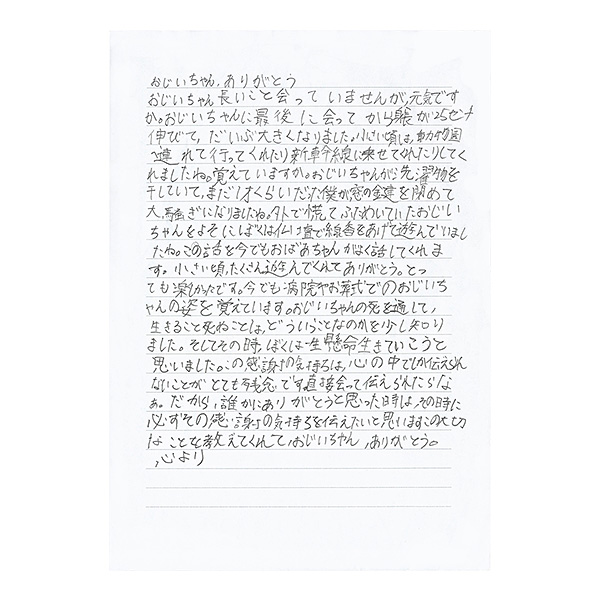 おじいちゃん、ありがとう
おじいちゃん長いこと会っていませんが、元気です
か。おじいちゃんに最後に会ってから背が25センチ
伸びて、だいぶ大きくなりました。小さい頃は、動物園
へ連れて行ってくれたり新幹線に乗せてくれたりしてく
れましたね。覚えていますか。おじいちゃんが洗濯物を
干していて、まだ1才くらいだった僕が窓の鍵を閉めて
大騒ぎになりましたね。外で慌てふためいていたおじい
ちゃんをよそに、ぼくは仏壇で線香をあげて遊んでいまし
たね。この話を今でもおばあちゃんがよく話してくれま
す。小さい頃、たくさん遊んでくれてありがとう。とっ
ても楽しかったです。今でも病院やお葬式でのおじいち
ゃんの姿を覚えています。おじいちゃんの死を通して、
生きること死ぬことは、どういうことなのかを少し知り
ました。そしてその時、ぼくは一生懸命生きていこうと
思いました。この感謝の気持ちは、心の中でしか伝えられ
ないことがとても残念です。直接会って伝えられたらな
ぁ。だから、誰かにありがとうと思った時は、その時に
必ずその感謝の気持ちを伝えたいと思います。この大切
なことを教えてくれて、おじいちゃん、ありがとう。
心より